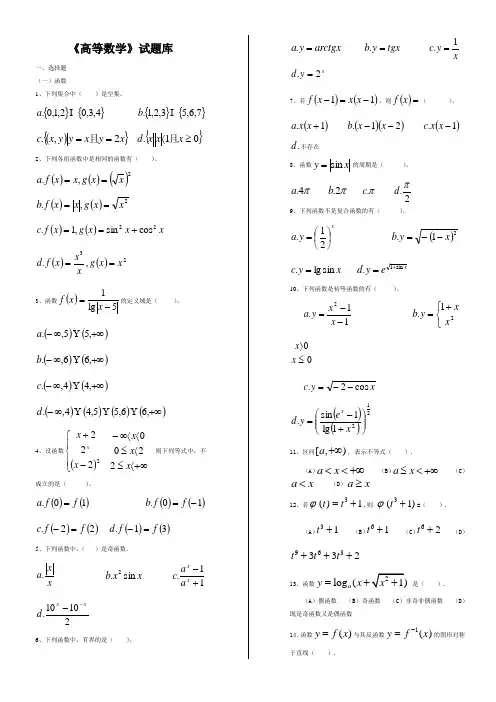 《高等数学》试题库
一、选择题
(一)函数
1、下列集合中( )是空集。
a.{0,1,2}I{0,3,4} b.{1,2,3}I{5,6,7}
c.{(x,y)|y=x且y=2x} d.{x||x|〈1且x≥0}
2、下列各组函数中是相同的函数有( )。
a.f(x)=x,g(x)=(√x)²
b.f(x)=|x|,g(x)=√x²
c.f(x)=1,g(x)=sin²x+cos²x
d.f(x)=x³/x,g(x)=x²
3、函数f(x)=1/(lg|x-5|)的定义域是( )。
a.(-∞,5)Y(5,+∞)
b.(-∞,6)Y(6,+∞)
c.(-∞,4)Y(4,+∞)
d.(-∞,4)Y(4,5)Y(5,6)Y(6,+∞)
4、设函数{x+2 -∞〈x〈0
2ˣ 0≤x〈2
(x-2)² 2≤x〈+∞ 则下列等式中,不
成立的是( )。
a.f(0)=f(1) b.f(0)=f(-1)
c.f(-2)=f(2) d.f(-1)=f(3)
5、下列函数中,( )是奇函数。
a.x/x b.x²sin x c.(aˣ-1)/(aˣ+1)
d.(10ˣ-10⁻ˣ)/2
6、下列函数中,有界的是( )。
a.y=arctgx b.y=tgx c.y=1/x
d.y=2ˣ
7、若f(x-1)=x(x-1),则f(x)=( )。
a.x(x+1) b.(x-1)(x-2) c.x(x-1)
d.不存在
8、函数y=|sin x|的周期是( )。
a.4π b.2π c.π d.π/2
9、下列函数不是复合函数的有( )。
a.y=(1/2)ˣ b.y=√(-(1-x)²)
c.y=lg sin x d.y=e^√(1+sin x)
10、下列函数是初等函数的有( )。
a.y=(x²-1)/(x-1) b.y={1+x
x²
x〉0
x≤0
c.y=√(-2-cos x)
d.y=(sin(eˣ-1)/lg(1+x²))^(1/2)
11、区间[a,+∞), 表示不等式( ).
(A)a<x<+∞ (B)a≤x<+∞ (C)
a<x (D)a≥x
12、若φ(t)=t³+1,则 φ(t³+1)=( ).
(A)t³+1 (B)t⁶+1 (C)t⁶+2 (D)
t⁹+3t⁶+3t³+2
13、函数y=logₐ(x+√(x²+1)) 是( ).
(A)偶函数 (B)奇函数 (C)非奇非偶函数 (D)
既是奇函数又是偶函数
14、函数y=f(x)与其反函数y=f⁻¹(x)的图形对称
于直线( ).